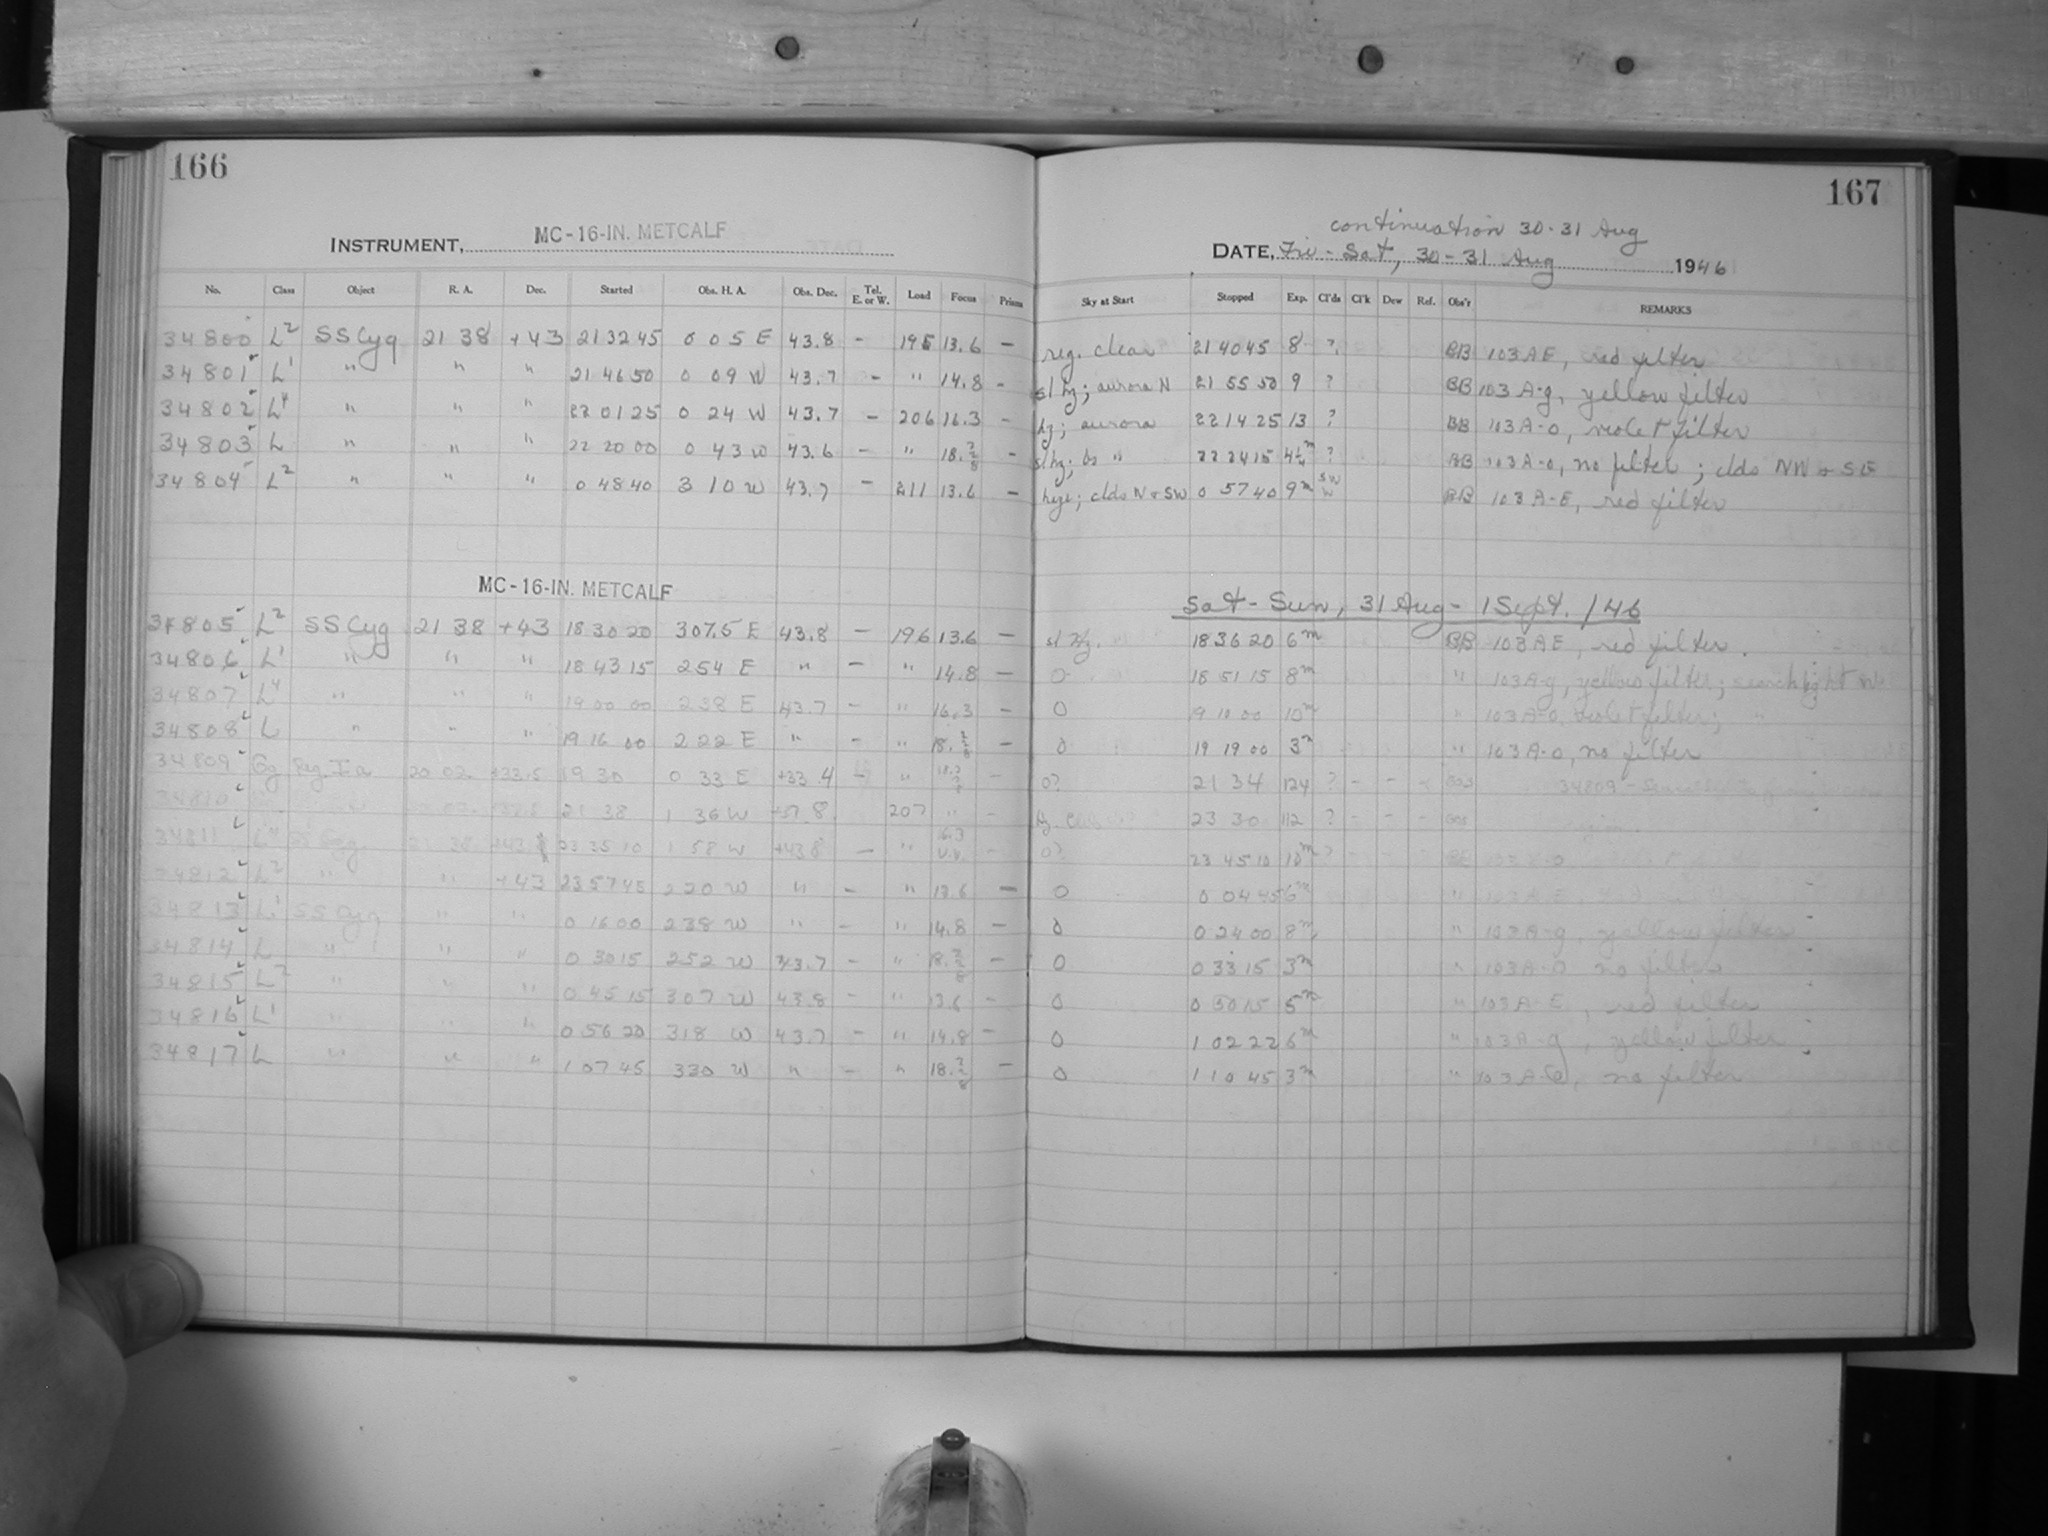 166
INSTRUMENT, MC-16-IN. METCALF
No. Class Object R. A. Dec. Started Obs. H. A. Obs. Dec. Tel. E. or W. Load Focus Prisms
34800 L2 SS Cyg 21 38 +43 21 32 45 0 05 E 43.8 - 195 13.6 -
34801 L1 " " " 21 46 50 0 09 W 43.7 - " 14.8 -
34802 L4 " " " 22 01 25 0 24 W 43.7 - 206 16.3 -
34803 L " " " 22 20 00 0 43 W 43.6 - " 18. -
34804 L2 " " " 0 48 40 3 10 W 43.7 - 211 13.6 -
MC-16-IN. METCALF
34805 L2 SS Cyg 21 38 +43 18 30 20 307.5 E 43.8 - 196 13.6 -
34806 L1 " " " 18 43 15 254 E " - " 14.8 -
34807 L4 " " " 19 00 00 238 E 43.7 - " 16.3 -
34808 L " " " 19 16 00 222 E " - " 18. -
34809 20 02 +33.5 19 30 0 33 E +33.4 - " -
34810 21 38 1 36 W 207 " -
34811 23 35 10 1 58 W +43.8 - " 16.3 -
34812 L2 " " +43 23 57 45 220 W " - " 13.6 -
34813 L1 SS Cyg " " 0 16 00 238 W " - " 14.8 -
34814 L " " " 0 30 15 252 W 43.7 - " 18. -
34815 L2 " " " 0 45 15 307 W 43.8 - " 13.6 -
34816 L1 " " " 0 56 20 318 W 43.7 - " 14.8 -
34817 L " " " 1 07 45 330 W " - " 18. -
167
continuation 30-31 Aug
DATE, Fri - Sat, 30-31 Aug 1946
Sky at Start Stopped Exp. Cl'ds Cl'k Dew Ref. Obs'r REMARKS
reg. clear 21 40 45 8 ? BB 103AE, red filter
sl hz; aurora N 21 55 50 9 ? BB 103A-g, yellow filter
hz; aurora 22 14 25 13 ? BB 103A-O, violet filter
sl hz; " 22 24 15 ? BB 103A-O, no filter; clds NW & SE
haze; clds N & SW 0 57 40 9m SW W BB 103A-E, red filter
Sat - Sun, 31 Aug - 1 Sept. /46
sl hz. 18 36 20 6m BB 103AE, red filter.
0 18 51 15 8m " 103A-g, yellow filter; searchlight
0 19 10 00 10m " 103A-O, violet filter; "
0 19 19 00 3m " 103A-O, no filter
0? 21 34 124 ? - - - 34809 -
23 30 112 ? - - -
0? 23 45 10 10m ?
0 0 04 45 6m "
0 0 24 00 8m " 103A-g, yellow filter
0 0 33 15 3m " 103A-O no filter
0 0 50 15 5m " 103A-E, red filter
0 1 02 22 6m " 103A-g, yellow filter
0 1 10 45 3m " 103A-O, no filter